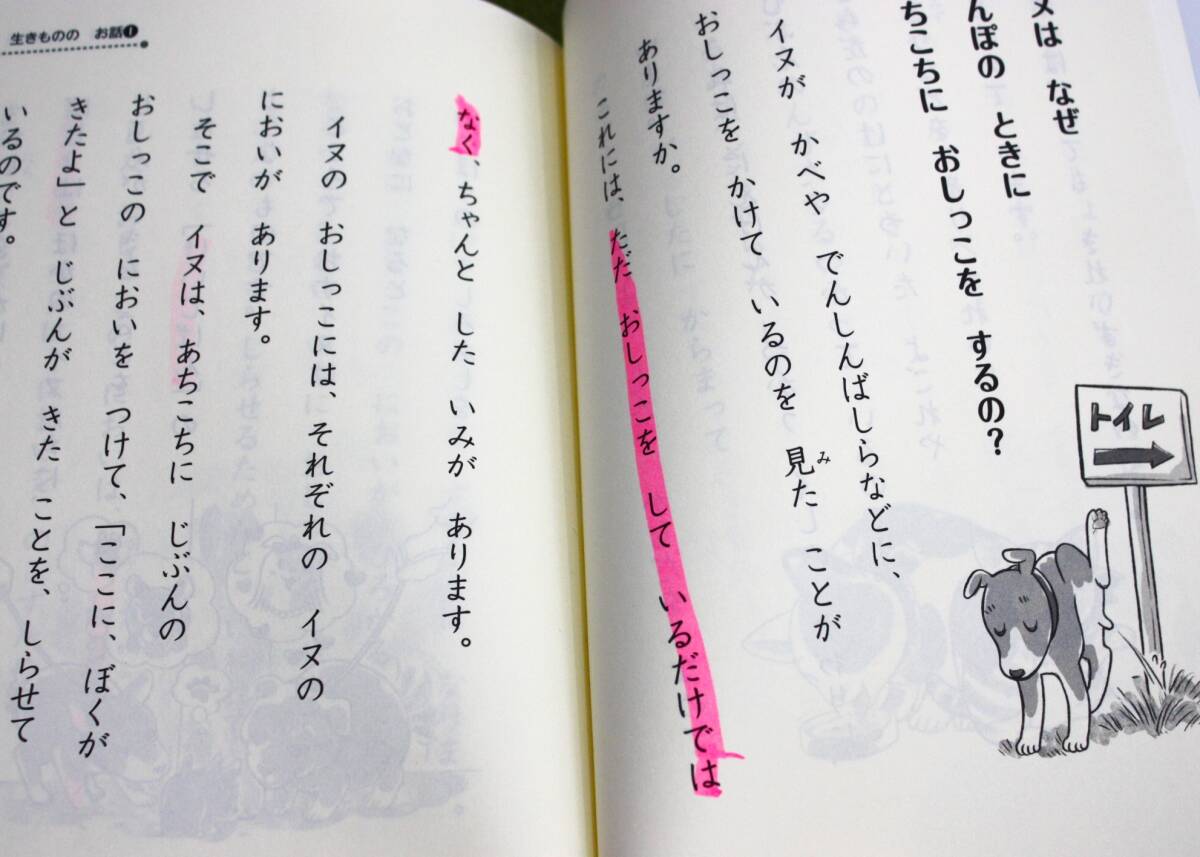 ヌは なぜ
んぽの ときに
ちこちに おしっこを するの？
イヌが かべや でんしんばしらなどに、
おしっこを かけて いるのを 見た ことが
み
ありますか。
これには、ただ おしっこを して いるだけでは
トイレ
生きものの お話1
なく、ちゃんと した いみが あります。
イヌの おしっこには、それぞれの イヌの
においが あります。
そこで イヌは、あちこちに じぶんの
おしっこの においを つけて、「ここに、ぼくが
きたよ」と じぶんが きた ことを、しらせて
いるのです。